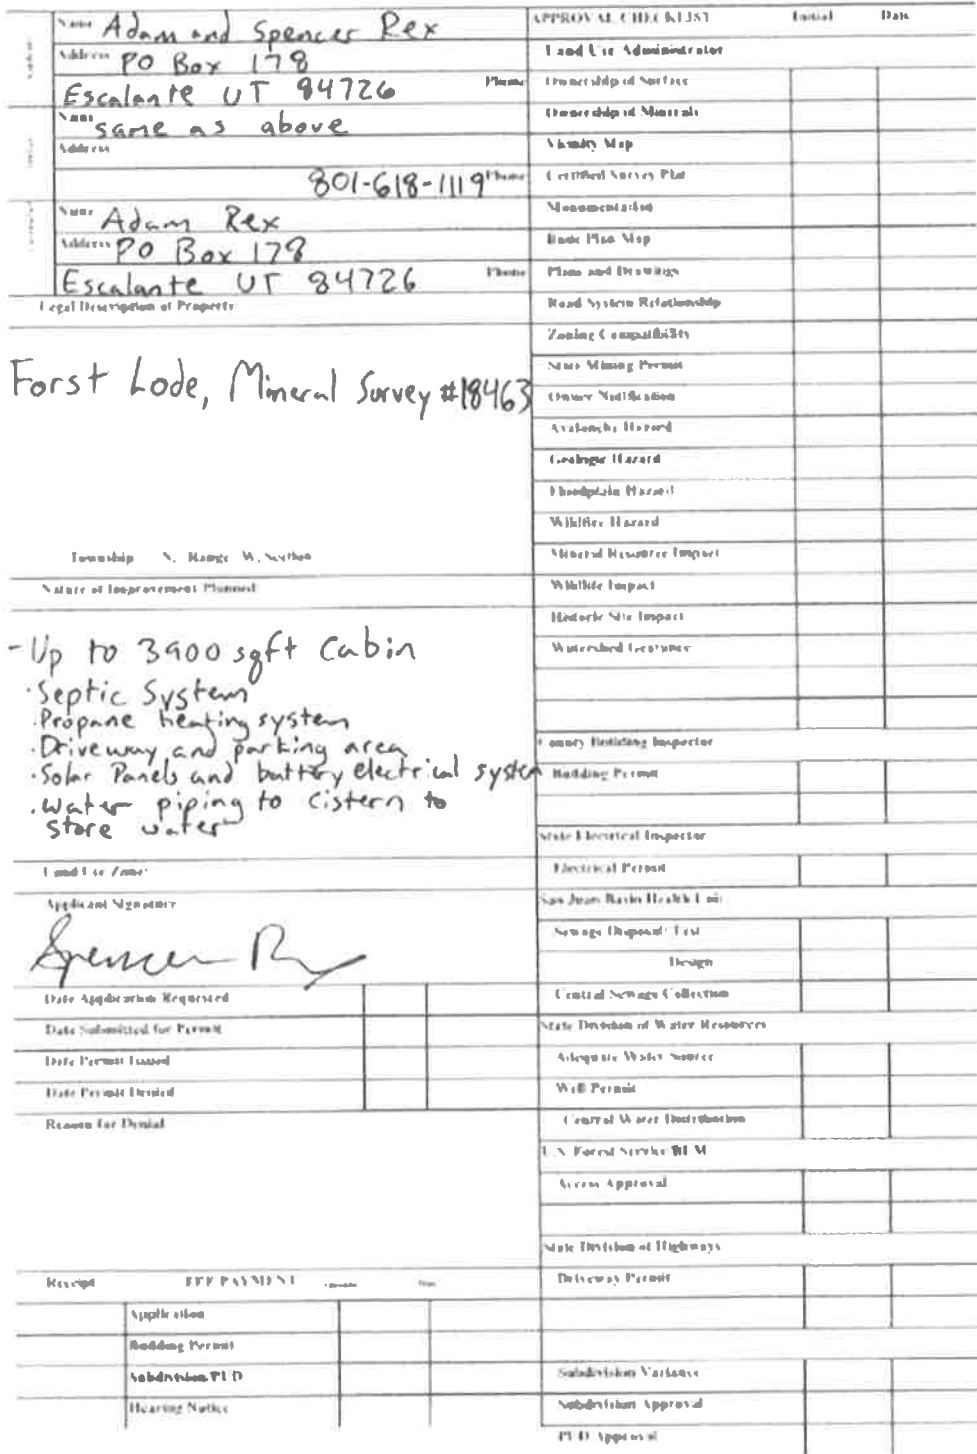 Name Adam and Spencer Rex
Address PO Box 178
Escalante UT 84726 Phone
Name same as above
Address
801-618-1119 Phone
Name Adam Rex
Address PO Box 178
Escalante UT 84726 Phone
Legal Description of Property
Forst Lode, Mineral Survey #18463
Township N, Range W, Section
Nature of Improvement Planned
- Up to 3900 sqft Cabin
· Septic System
· Propane heating system
· Driveway and parking area
· Solar Panels and battery electrical system
· water piping to cistern to
store water
Land Use Zone:
Applicant Signature
Spencer R
Date Application Requested
Date Submitted for Permit
Date Permit Issued
Date Permit Denied
Reason for Denial
Receipt FEE PAYMENT
Application
Building Permit
Subdivision/PUD
Hearing Notice
APPROVAL CHECKLIST Initial Date
Land Use Administrator
Ownership of Surface
Ownership of Minerals
Vicinity Map
Certified Survey Plat
Monumentation
Basic Plan Map
Plans and Drawings
Road System Relationship
Zoning Compatibility
State Mining Permit
Owner Notification
Avalanche Hazard
Geologic Hazard
Floodplain Hazard
Wildfire Hazard
Mineral Resource Impact
Wildlife Impact
Historic Site Impact
Watershed Clearance
County Building Inspector
Building Permit
State Electrical Inspector
Electrical Permit
San Juan Basin Health Unit
Sewage Disposal: Test
Design
Central Sewage Collection
State Division of Water Resources
Adequate Water Source
Well Permit
Central Water Distribution
U.S. Forest Service/BLM
Access Approval
State Division of Highways
Driveway Permit
Subdivision Variance
Subdivision Approval
PUD Approval